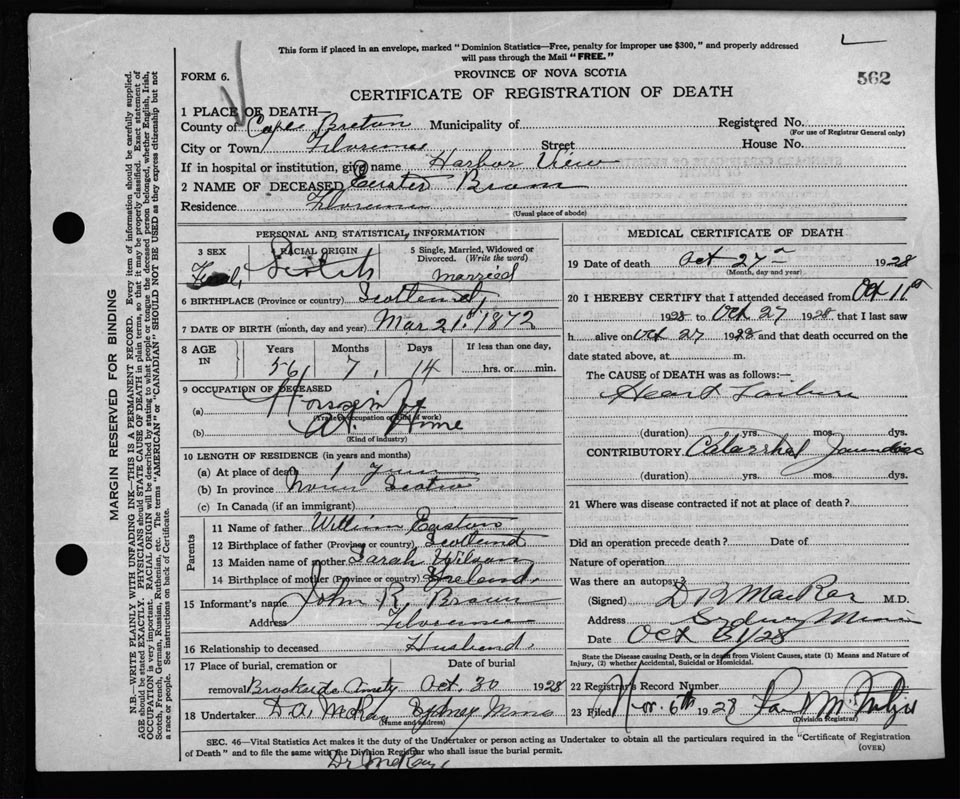 This form if placed in an envelope, marked "Dominion Statistics—Free, penalty for improper use $300," and properly addressed
will pass through the Mail "FREE."
FORM 6.
PROVINCE OF NOVA SCOTIA
562
CERTIFICATE OF REGISTRATION OF DEATH
1 PLACE OF DEATH—
County of Cape Breton Municipality of Registered No.
(For use of Registrar General only)
City or Town Florence Street House No.
If in hospital or institution, give name Harbor View
2 NAME OF DECEASED Brown
Residence Florence
(Usual place of abode)
PERSONAL AND STATISTICAL INFORMATION
3 SEX
RACIAL ORIGIN
5 Single, Married, Widowed or Divorced. (Write the word)
Scotch
married
6 BIRTHPLACE (Province or country) Scotland,
7 DATE OF BIRTH (month, day and year) Mar 21. 1872
8 AGE IN
Years Months Days If less than one day,
56 7, 14 hrs. or min.
9 OCCUPATION OF DECEASED
(a)
(Trade occupation or kind of work)
(b) At Home
(Kind of industry)
10 LENGTH OF RESIDENCE (in years and months)
(a) At place of death 1 year
(b) In province Nova Scotia
(c) In Canada (if an immigrant)
Parents
11 Name of father William
12 Birthplace of father (Province or country) Scotland
13 Maiden name of mother Sarah Wilson
14 Birthplace of mother (Province or country) Ireland,
15 Informant's name John R. Brown
Address Florence
16 Relationship to deceased Husband.
17 Place of burial, cremation or Date of burial
removal Brookside Oct. 30 1928
18 Undertaker D.A. McRay Sydney Mines
(Name and address)
MEDICAL CERTIFICATE OF DEATH
19 Date of death Oct 27 1928
(Month, day and year)
20 I HEREBY CERTIFY that I attended deceased from Oct 11
1928 to Oct 27 1928 that I last saw
h alive on Oct 27 1928 and that death occurred on the
date stated above, at m.
The CAUSE of DEATH was as follows:—
Heart Failure
(duration) yrs. mos. dys.
CONTRIBUTORY Catarrhal Jaundice
(duration) yrs. mos. dys.
21 Where was disease contracted if not at place of death?
Did an operation precede death? Date of
Nature of operation
Was there an autopsy?
(Signed) M.D.
Address Sydney Mines
Date Oct 31/28
State the Disease causing Death, or in death from Violent Causes, state (1) Means and Nature of
Injury, (2) whether Accidental, Suicidal or Homicidal.
22 Registrar's Record Number
23 Filed Nov. 6th 1928
(Division Registrar)
SEC. 46—Vital Statistics Act makes it the duty of the Undertaker or person acting as Undertaker to obtain all the particulars required in the "Certificate of Registration
of Death" and to file the same with the Division Registrar who shall issue the burial permit.
(OVER)
Dr McRay
MARGIN RESERVED FOR BINDING
N.B.—WRITE PLAINLY WITH UNFADING INK—THIS IS A PERMANENT RECORD. Every item of information should be carefully supplied.
AGE should be stated EXACTLY. PHYSICIANS should STATE CAUSE OF DEATH in plain terms, so that it may be properly classified. Exact statement of
OCCUPATION is very important. RACIAL ORIGIN will be described by stating to what people or tongue the deceased person belonged, whether English, Irish,
Scotch, French, German, Russian, Ruthenian, etc. The terms "AMERICAN" or "CANADIAN" SHOULD NOT BE USED as they express citizenship but not
a race or people. See instructions on back of Certificate.